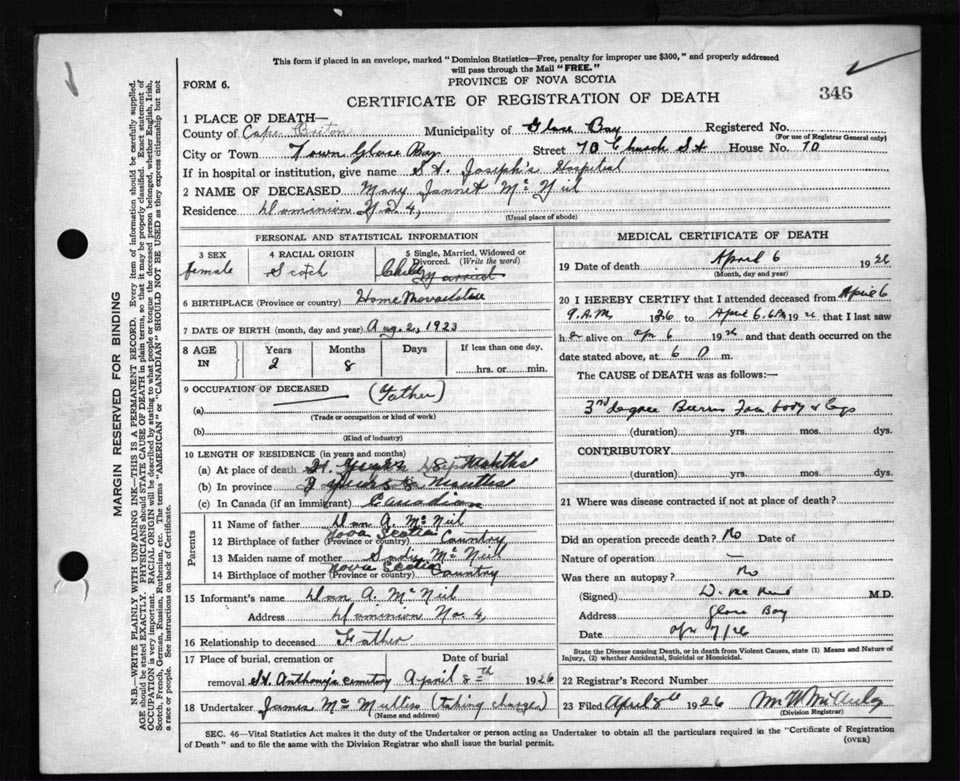 This form if placed in an envelope, marked "Dominion Statistics—Free, penalty for improper use $300," and properly addressed
will pass through the Mail "FREE."
FORM 6.
PROVINCE OF NOVA SCOTIA
346
CERTIFICATE OF REGISTRATION OF DEATH
1 PLACE OF DEATH—
County of Cape Breton Municipality of Glace Bay Registered No.
(For use of Registrar General only)
City or Town Town Glace Bay Street 70 Church St House No. 70
If in hospital or institution, give name St. Joseph's Hospital
2 NAME OF DECEASED Mary Jannet Mc Neil
Residence Dominion No 4,
(Usual place of abode)
PERSONAL AND STATISTICAL INFORMATION
3 SEX 4 RACIAL ORIGIN 5 Single, Married, Widowed or Divorced. (Write the word)
female Scotch Child Married
6 BIRTHPLACE (Province or country) Home
7 DATE OF BIRTH (month, day and year) Aug 2, 1923
8 AGE IN Years Months Days If less than one day,
2 8 hrs. or min.
9 OCCUPATION OF DECEASED (Father)
(a)
(Trade or occupation or kind of work)
(b)
(Kind of industry)
10 LENGTH OF RESIDENCE (in years and months)
(a) At place of death Months
(b) In province 2 years 8 Months
(c) In Canada (if an immigrant) Canadian
Parents
11 Name of father Dan A. Mc Neil
12 Birthplace of father (Province or country) Nova Scotia Country
13 Maiden name of mother Sadie Mc Neil
14 Birthplace of mother (Province or country) Nova Scotia Country
15 Informant's name Dan A. Mc Neil
Address Dominion No. 4,
16 Relationship to deceased Father
17 Place of burial, cremation or Date of burial
removal St. Anthony's cemetery April 8th 1926
18 Undertaker James Mc Mullin (taking charge)
(Name and address)
MEDICAL CERTIFICATE OF DEATH
19 Date of death April 6 1926
(Month, day and year)
20 I HEREBY CERTIFY that I attended deceased from April 6
9 A.M 1926 to April 6, 6 PM 1926 that I last saw
her alive on apr 6 1926 and that death occurred on the
date stated above, at 6 P m.
The CAUSE of DEATH was as follows:—
3rd degree Burns Face body & legs
(duration) yrs. mos. dys.
CONTRIBUTORY.
(duration) yrs. mos. dys.
21 Where was disease contracted if not at place of death?
Did an operation precede death? No Date of
Nature of operation —
Was there an autopsy? No
(Signed) M.D.
Address Glace Bay
Date apr 7/26
State the Disease causing Death, or in death from Violent Causes, state (1) Means and Nature of
Injury, (2) whether Accidental, Suicidal or Homicidal.
22 Registrar's Record Number
23 Filed April 8th 1926
(Division Registrar)
SEC. 46—Vital Statistics Act makes it the duty of the Undertaker or person acting as Undertaker to obtain all the particulars required in the "Certificate of Registration
of Death" and to file the same with the Division Registrar who shall issue the burial permit.
(OVER)
MARGIN RESERVED FOR BINDING
N.B.—WRITE PLAINLY WITH UNFADING INK—THIS IS A PERMANENT RECORD. Every item of information should be carefully supplied.
AGE should be stated EXACTLY. PHYSICIANS should STATE CAUSE OF DEATH in plain terms, so that it may be properly classified. Exact statement of
OCCUPATION is very important. RACIAL ORIGIN will be described by stating to what people or tongue the deceased person belonged, whether English, Irish,
Scotch, French, German, Russian, Ruthenian, etc. The terms "AMERICAN" or "CANADIAN" SHOULD NOT BE USED as they express citizenship but not
a race or people. See instructions on back of Certificate.